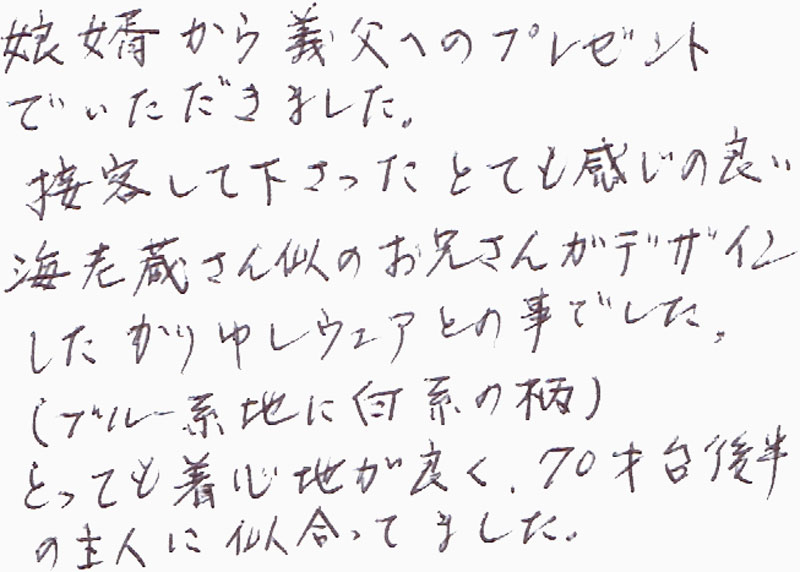 娘婿から義父へのプレゼント
でいただきました。
接客して下さったとても感じの良い
海老蔵さん似のお兄さんがデザイン
したかりゆしウェアとの事でした。
(ブルー系地に白系の柄)
とっても着心地が良く、70才台後半
の主人に似合ってました。